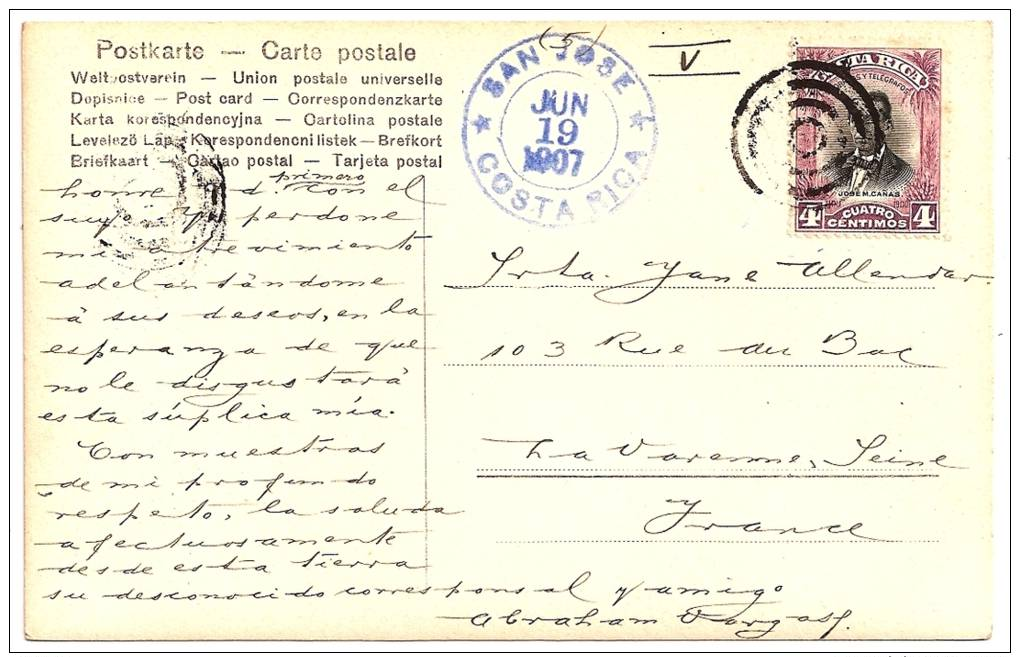 Postkarte — Carte postale
Weltpostverein — Union postale universelle
Dopisnice — Post card — Correspondenzkarte
Karta korespondencyjna — Cartolina postale
Levelező Lap — Korespondencni listek — Brefkort
Briefkaart — Cartao postal — Tarjeta postal
(5)
V
SAN JOSE
JUN
19
1907
COSTA RICA
COSTA RICA
JOSE M. CAÑAS
4 CUATRO CENTIMOS 4
primero
honre d con el
suyo y perdone
mi atrevimiento
adelantándome
á sus deseos, en la
esperanza de que
no le disgustará
esta súplica mía.
Con muestras
de mi profundo
respeto, la saluda
afectuosamente
desde esta tierra
su desconocido corresponsal y amigo
Abraham Vargas f.
Srta. Jane Allendar
103 Rue du Bac
La Varenne, Seine
France